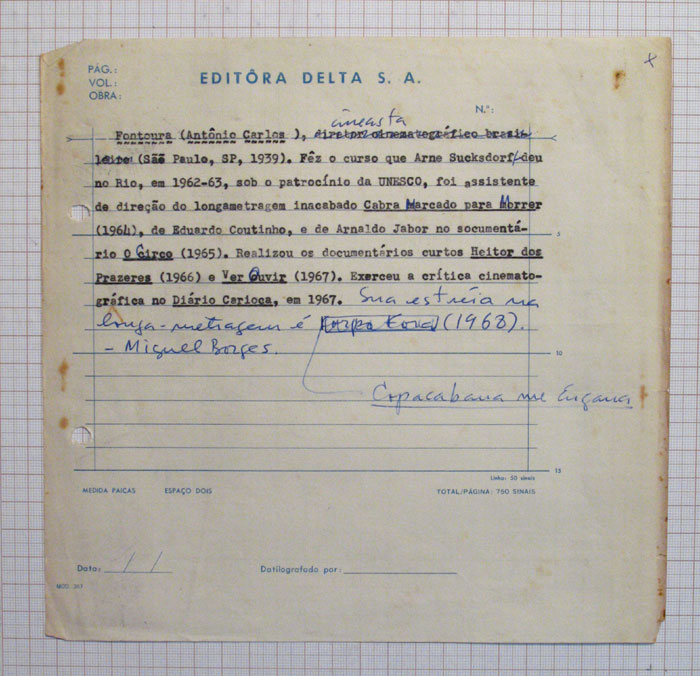 x
PÁG.:
VOL.:
OBRA:
EDITÔRA DELTA S. A.
N.º:
cineasta
Fontoura (Antônio Carlos ), diretor cinematográfico brasi-
leiro (São Paulo, SP, 1939). Fêz o curso que Arne Sucksdorf deu
no Rio, em 1962-63, sob o patrocínio da UNESCO, foi assistente
de direção do longametragem inacabado Cabra Marcado para Morrer
(1964), de Eduardo Coutinho, e de Arnaldo Jabor no socumentá-
rio O Circo (1965). Realizou os documentários curtos Heitor dos
Prazeres (1966) e Ver Ouvir (1967). Exerceu a crítica cinemato-
gráfica no Diário Carioca, em 1967. Sua estréia na
longa-metragem é (1968).
- Miguel Borges.
Copacabana me Engana
5
10
15
Linha: 50 sinais
MEDIDA PAICAS ESPAÇO DOIS TOTAL/PÁGINA: 750 SINAIS
Data: / / Datilografado por: